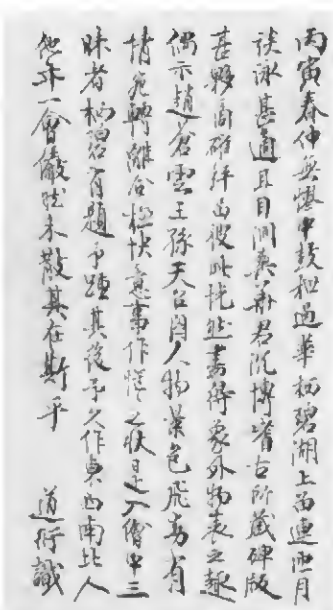 丙寅春仲無懷中鼓枻過華栖碧湖上留連匝月
談詠甚適且目洞英華君沉博嗜古所藏碑版
甚夥商確評品彼此恍然喜得象外物表之趣
偶示趙蒼雲王孫天台圖人物景色飛動有
情宛轉離合極快意事作之狀是入繪中三
昧者栖碧有題予踵其後予久作東西南北人
他年一會儼然未散其在斯乎 道衍識